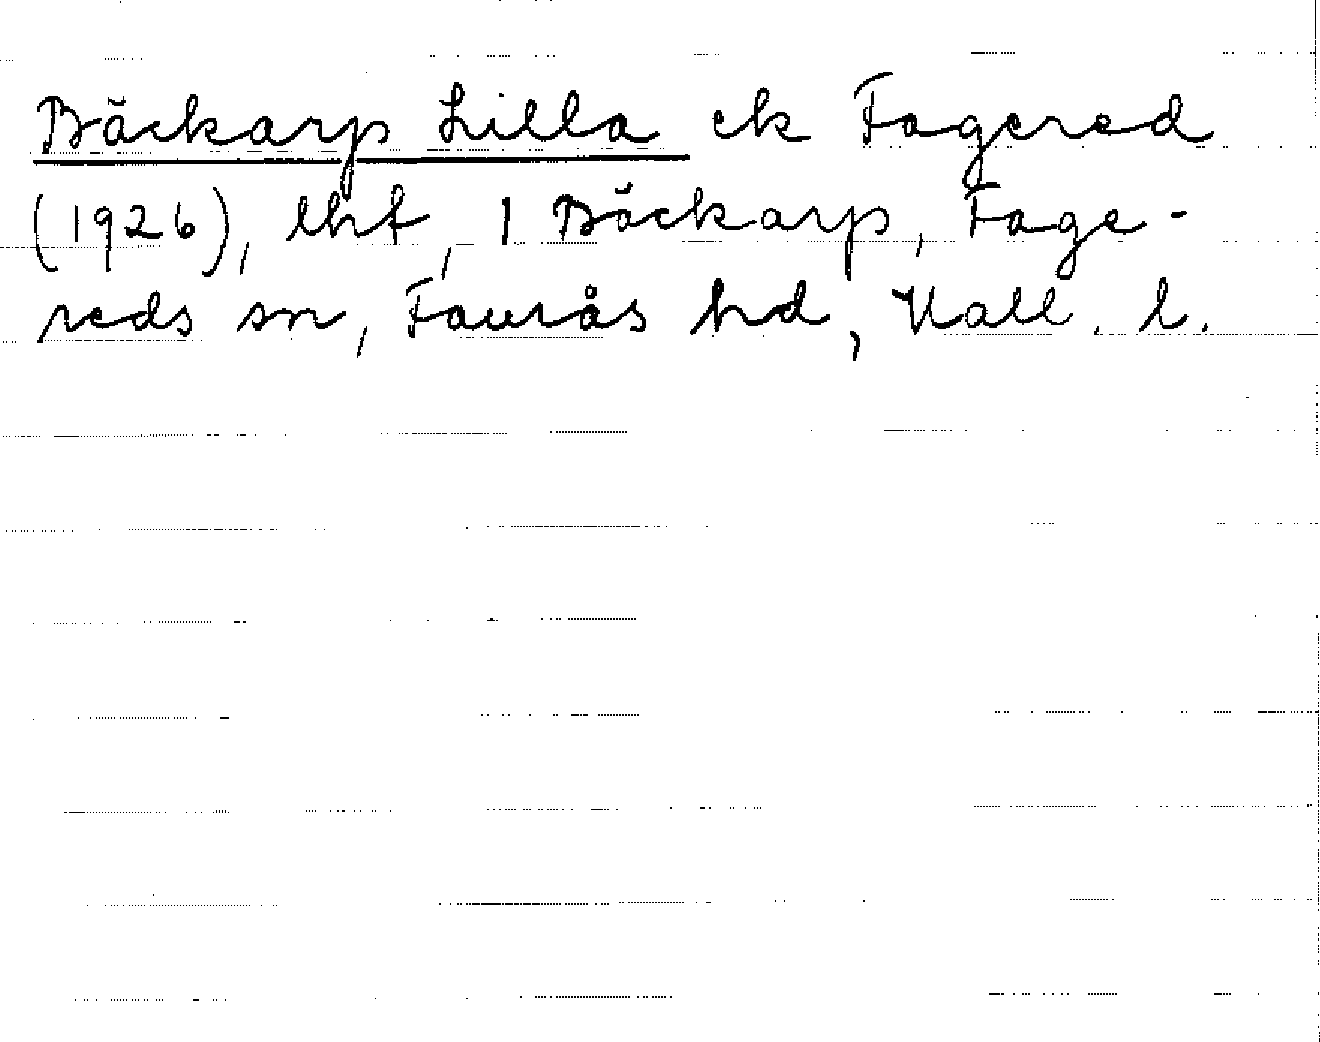 Bäckarp Lilla ek Fagered
(1926), lht, 1 Bäckarp, Fage-
reds sn, Faurås hd, Hall. l.